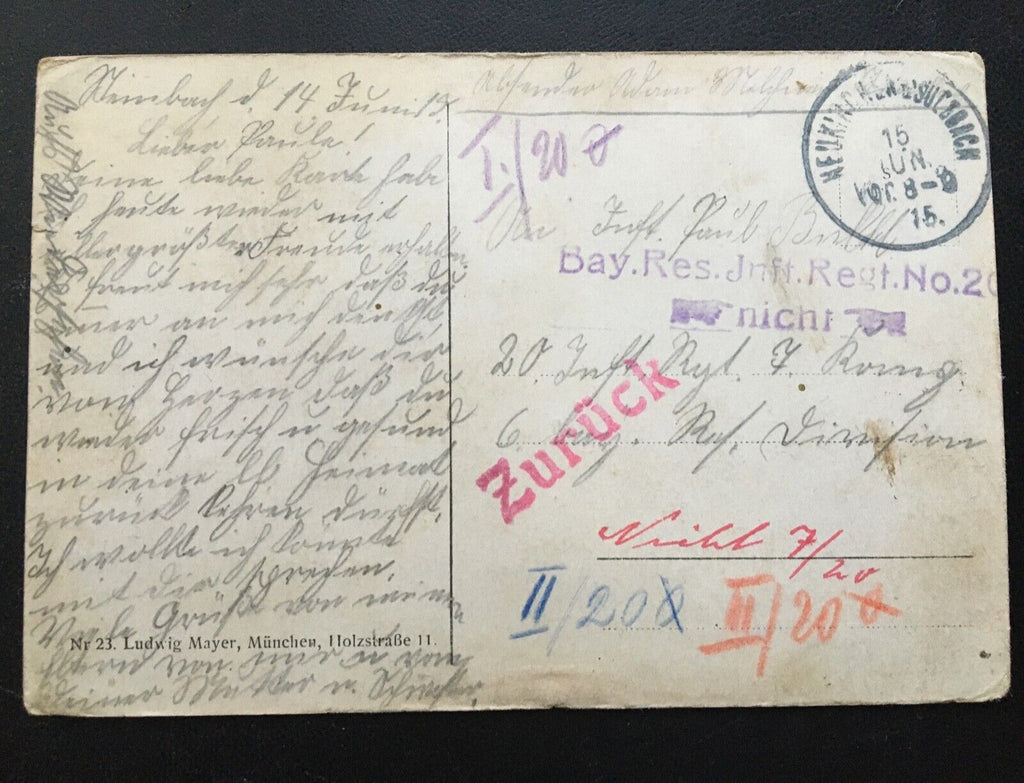 Steinbach d. 14 Juni 15.
Lieber Paule!
Deine liebe Karte habe
heute wieder mit
größter Freude erhalten
freut mich sehr, daß du
immer an mich denkst
und ich wünsche dir
vom Herzen daß du
wieder frisch u gesund
in deine lb. Heimat
zurück kehren dürfst.
Ich wollte ich könnte
mit dir sprechen.
Viele Grüße von meinen
Eltern von mir u von
deiner Mutter u. Schwester
Nr 23. Ludwig Mayer, München, Holzstraße 11.
Absender Adam
NEUKIRCHEN B. SULZBACH
15
JUN.
Vor. 8-9
15.
I./20
An Inft. Paul
Bay.Res.Jnft.Regt.No.20
nicht
20. Inft. Rgt. 7. Komp.
6. bay. Res. Division
Zurück
Nicht 7/20
II/20
III/20